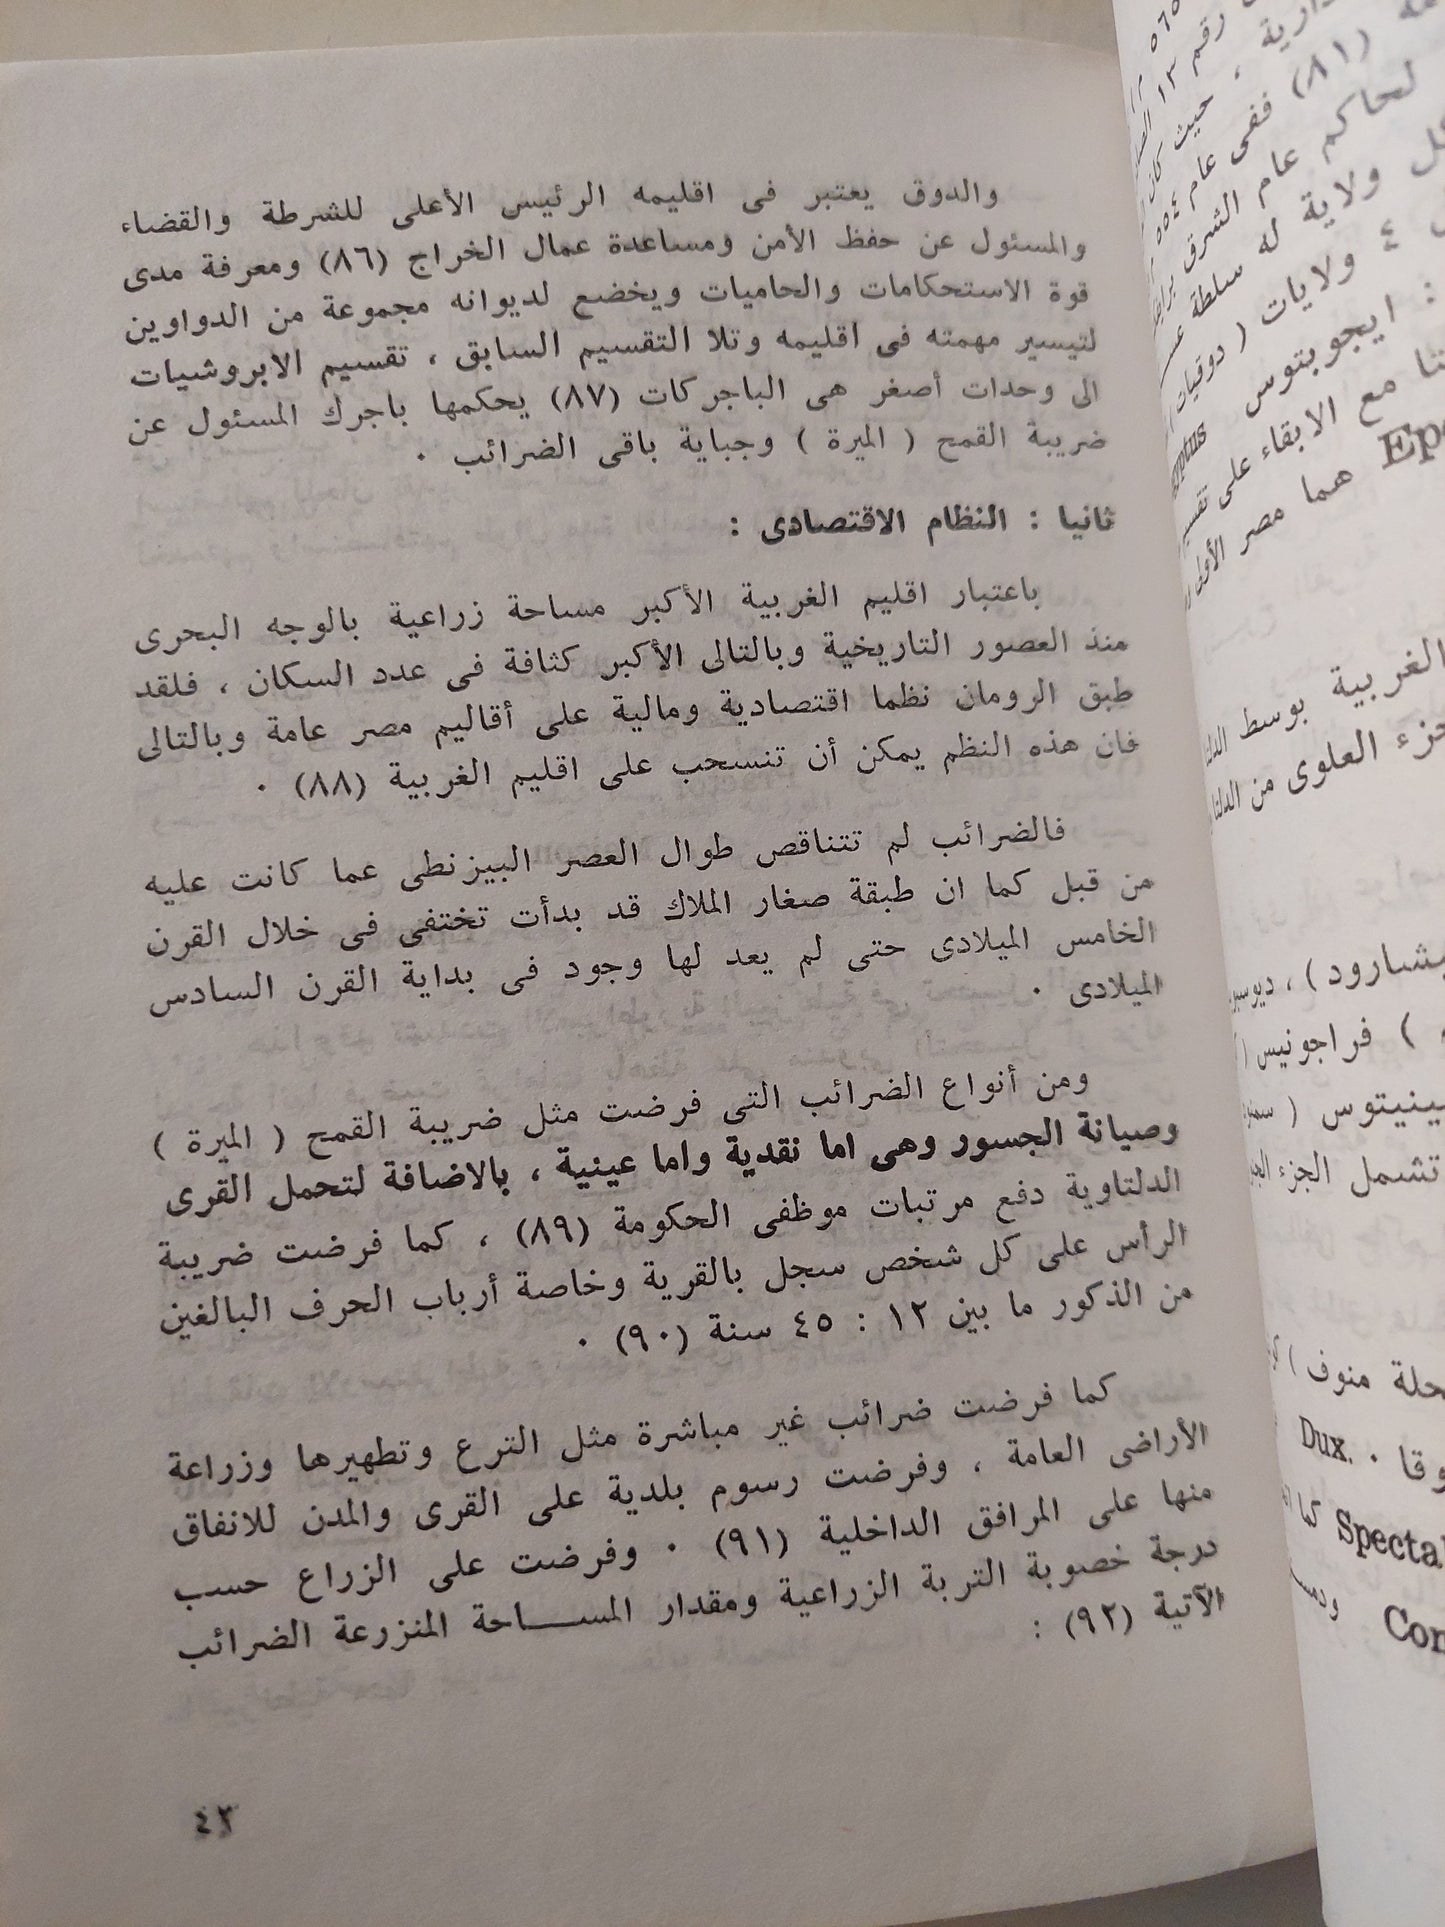 والدوق يعتبر فى اقليمه الرئيس الأعلى للشرطة والقضاء
والمسئول عن حفظ الأمن ومساعدة عمال الخراج (٨٦) ومعرفة مدى
قوة الاستحكامات والحاميات ويخضع لديوانه مجموعة من الدواوين
لتيسير مهمته فى اقليمه وتلا التقسيم السابق ، تقسيم الابروشيات
الى وحدات أصغر هى الباجركات (٨٧) يحكمها باجرك المسئول عن
ضريبة القمح ( الميرة ) وجباية باقى الضرائب ٠
ثانيا : النظام الاقتصادى :
باعتبار اقليم الغربية الأكبر مساحة زراعية بالوجه البحرى
منذ العصور التاريخية وبالتالى الأكبر كثافة فى عدد السكان ، فلقد
طبق الرومان نظما اقتصادية ومالية على أقاليم مصر عامة وبالتالى
فان هذه النظم يمكن أن تنسحب على اقليم الغربية (٨٨) ٠
فالضرائب لم تتناقص طوال العصر البيزنطى عما كانت عليه
من قبل كما ان طبقة صغار الملاك قد بدأت تختفى فى خلال القرن
الخامس الميلادى حتى لم يعد لها وجود فى بداية القرن السادس
الميلادى ٠
ومن أنواع الضرائب التى فرضت مثل ضريبة القمح ( الميرة )
وصيانة الجسور وهى اما نقدية واما عينية ، بالاضافة لتحمل القرى
الدلتاوية دفع مرتبات موظفى الحكومة (٨٩) ، كما فرضت ضريبة
الرأس على كل شخص سجل بالقرية وخاصة أرباب الحرف البالغين
من الذكور ما بين ١٢ : ٤٥ سنة (٩٠) ٠
كما فرضت ضرائب غير مباشرة مثل الترع وتطهيرها وزراعة
الأراضى العامة ، وفرضت رسوم بلدية على القرى والمدن للانفاق
منها على المرافق الداخلية (٩١) ٠ وفرضت على الزراع حسب
درجة خصوبة التربة الزراعية ومقدار المســاحة المنزرعة الضرائب
الآتية (٩٢) :
٤٣
رقم ١٣
حيث كان
(٨١) ففى عام ٥٥٤
لحاكم عام الشرق
ولاية له سلطة
٤ ولايات ( دوقيات )
: ايجوبتوس
مع الابقاء على
هما مصر
الغربية بوسط
العلوى من الدلتا
( فراجونيس
تشمل الجزء
منوف )
Dux. ٠
كما